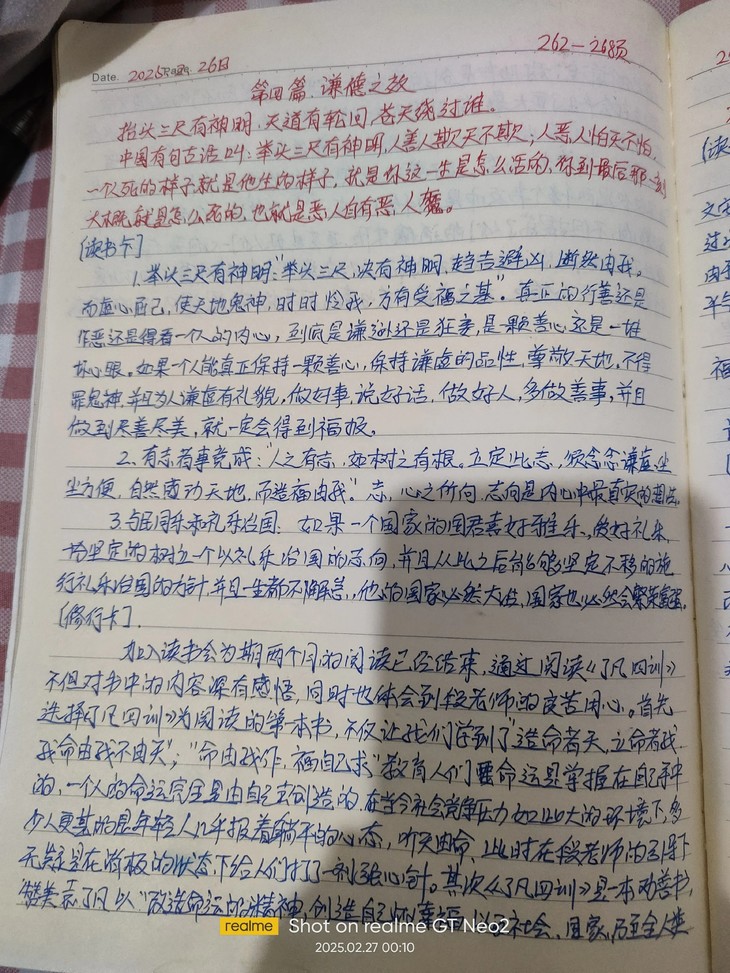 262—268页
Date. 2025 2月 26日
第四篇. 谦德之效
抬头三尺有神明，天道有轮回，苍天绕过谁。
中国有句古话叫：举头三尺有神明，人善人欺天不欺；人恶人怕天不怕，
一个人死的样子就是他生的样子，就是你这一生是怎么活的，你到最后那一刻
大概就是怎么死的，也就是恶人自有恶人磨。
[读书卡]
1.举头三尺有神明："举头三尺，决有神明，趋吉避凶，断然由我。
而虚心屈己，使天地鬼神，时时怜我，方有受福之基"。真正的行善还是
作恶还是得看一个人的内心，到底是谦逊还是狂妄，是一颗善心还是一堆
坏心眼。如果一个人能真正保持一颗善心，保持谦虚的品性，尊敬天地，不得
罪鬼神，并且为人谦虚有礼貌，做好事，说好话，做好人，多做善事，并且
做到尽善尽美，就一定会得到福报。
2.有志者事竟成："人之有志，如树之有根。立定此志，须念念谦虚，尘
尘方便，自然感动天地，而造福由我"。志，心之所向，志向是内心中最真实的想法。
3.与民同乐和礼乐治国：如果一个国家的国君喜好雅乐，爱好礼乐，
坚定的树立一个以礼乐治国的志向，并且从此之后能够坚定不移的施
行礼乐治国的方针，并且一生都不懈怠，他的国家必然大治，国家也必然会繁荣富强。
[修行卡]．
加入读书会为期两个月的阅读已经结束，通过阅读《了凡四训》
不但对书中的内容深有感悟，同时也体会到段老师的良苦用心。首先
选择了凡四训》为阅读的第一本书，不仅让我们学到了"造命者天，立命者我
我命由我不由天"；"命由我作，福自己求"教育人们要命运是掌握在自己手中
的，一个人的命运完全是由自己去创造的，在当今社会竞争压力如此大的环境下，多
少人更甚的是年轻人几乎报着躺平的心态，听天由命，此时在段老师的引导下
无疑是在消极的状态下给人们打了一剂强心针。其次《了凡四训》是一本劝善书，
赞美袁了凡以"改造命运的精神，创造自己的幸福，以至社会、国家，乃至全人类
realme Shot on realme GT Neo2
2025.02.27 00:10